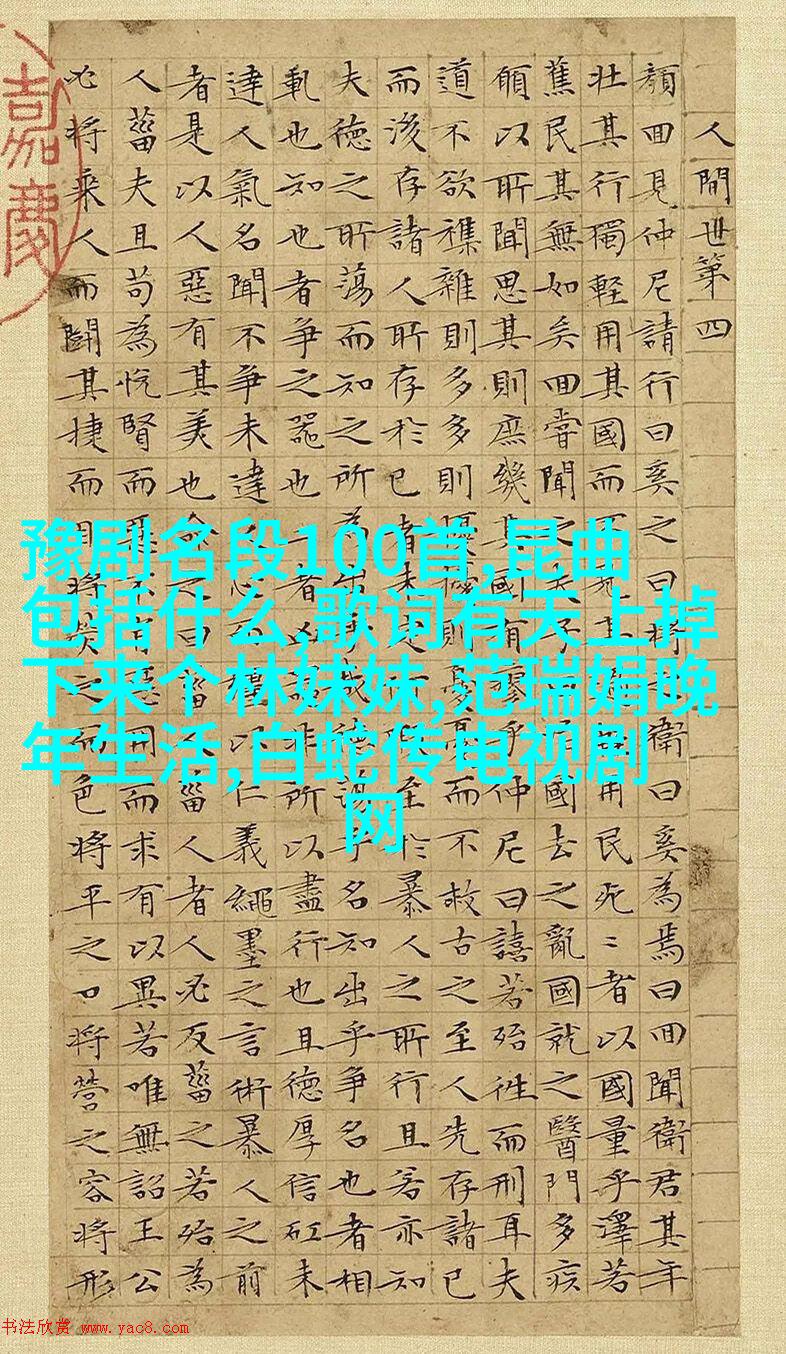 人間世第四
顏囬見仲尼請行曰奚之曰將衛曰奚為焉曰囬聞衛君其年
壯其行獨輕用其國而用民死〻者以國量乎澤若
蕉民其無如矣囬嘗聞之夫子國去之亂國就之醫門多疾
願以所聞思其則庶幾其國有瘳乎仲尼曰譆若殆往而刑耳夫
道不欲襍雜則多多則擾擾則憂而不救古之至人先存諸已
而後存諸人所存於已者未至於暴人之所行且若亦知
夫德之所蕩而知之所為出乎哉德蕩乎名知出乎爭名也者相
軋也知也者爭之器也二者凶非所以盡行也且德厚信矼未
達人氣名聞不爭未達人心而彊以仁義繩墨之言術暴人之前
者是以人惡有其美也命之曰菑人菑人者人必反菑之若殆為
人菑夫且苟為悅賢而惡不惡用而求有以異若唯無詔王公
必將乘人而鬭其捷而目將熒之而色將平之口將營之容將形
嘉慶
豫剧名段100首,昆曲
包括什么,歌词有天上掉
下来个林妹妹,范瑞娟晚
年生活,白蛇传电视剧
网
书法欣赏 www.yac8.com